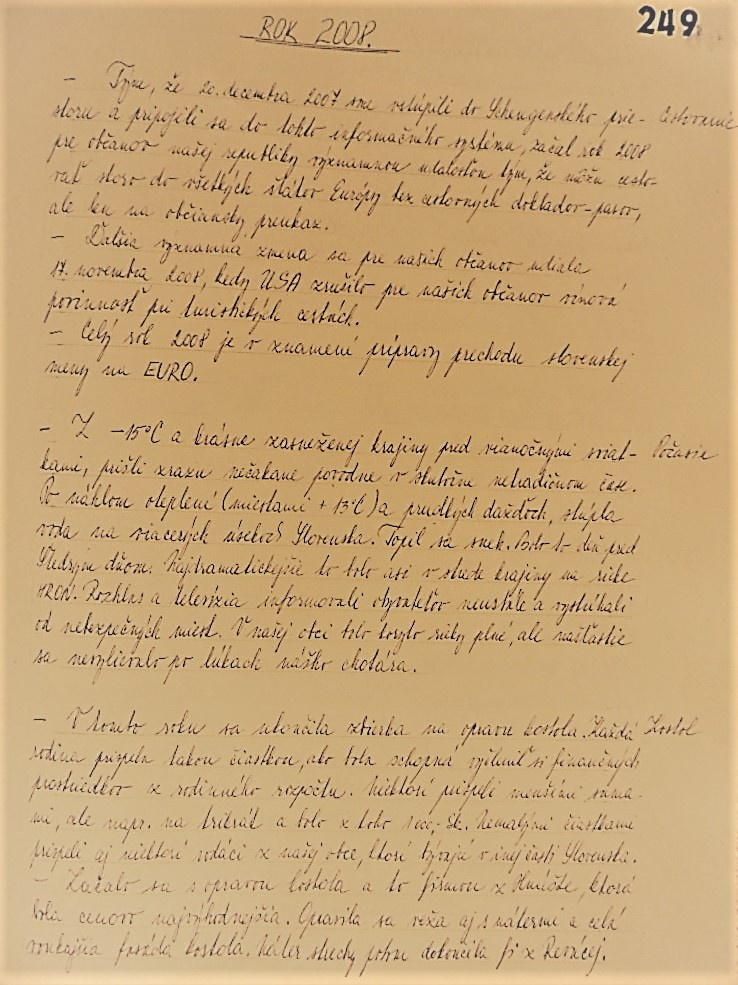 249
ROK 2008.
- Tým, že 20. decembra 2007 sme vstúpili do Schengenského prie- Cestovanie
storu a pripojili sa do tohto informačného systému, začal rok 2008
pre občanov našej republiky významnou udalosťou tým, že môžu cesto-
vať skoro do všetkých štátov Európy bez cestovných dokladov-pasov,
ale len na občiansky preukaz.
- Ďalšia významná zmena sa pre našich občanov udiala
17. novembra 2008, kedy USA zrušilo pre našich občanov vízovú
povinnosť pri turistických cestách.
- Celý rok 2008 je v znamení prípravy prechodu slovenskej
meny na EURO.
- Z -15°C a krásne zasneženej krajiny pred vianočnými sviat- Počasie
kami, prišli zrazu nečakane povodne v skutočne netradičnom čase.
Po náhlom oteplení (miestami + 13°C) a prudkých dažďoch, stúpla
voda na viacerých úsekoch Slovenska. Topil sa sneh. Bolo to deň pred
Štedrým dňom. Najdramatickejšie to bolo asi v strede krajiny na rieke
HRON. Rozhlas a televízia informovali obyvateľov neustále a vystríhali
od nebezpečných miest. V našej obci bolo koryto rieky plné, ale našťastie
sa nevylievalo po lúkach nášho chotára.
- V tomto roku sa ukončila zbierka na opravu kostola. Každá Kostol
rodina prispela takou čiastkou, ako bola schopná vyčleniť si finančných
prostriedkov z rodinného rozpočtu. Niektorí prispeli menšími suma-
mi, ale napr. na trikrát a bolo z toho 1000,- Sk. Nemalými čiastkami
prispeli aj niektorí rodáci z našej obce, ktorí bývajú v inej časti Slovenska.
- Začalo sa s opravou kostola a to firmou z Hnúšte, ktorá
bola cenovo najvýhodnejšia. Opravila sa veža aj s nátermi a celá
vonkajšia fasáda kostola. Náter strechy potom dokončila fi z Revúcej.